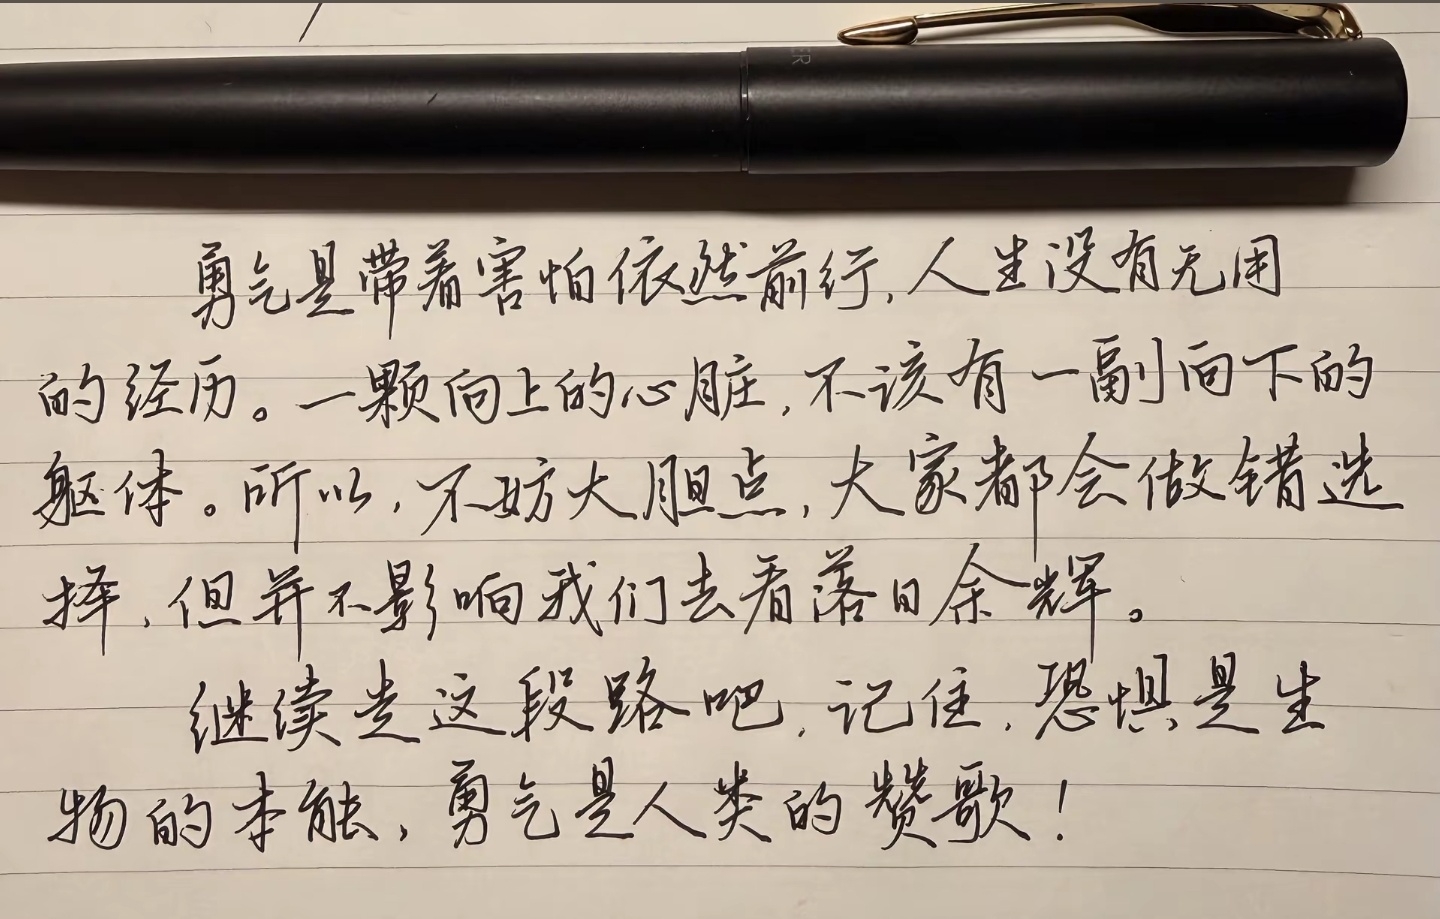 ER
勇气是带着害怕依然前行,人生没有无用
的经历。一颗向上的心脏,不该有一副向下的
躯体。所以,不妨大胆点,大家都会做错选
择,但并不影响我们去看落日余辉。
继续走这段路吧,记住,恐惧是生
物的本能,勇气是人类的赞歌!